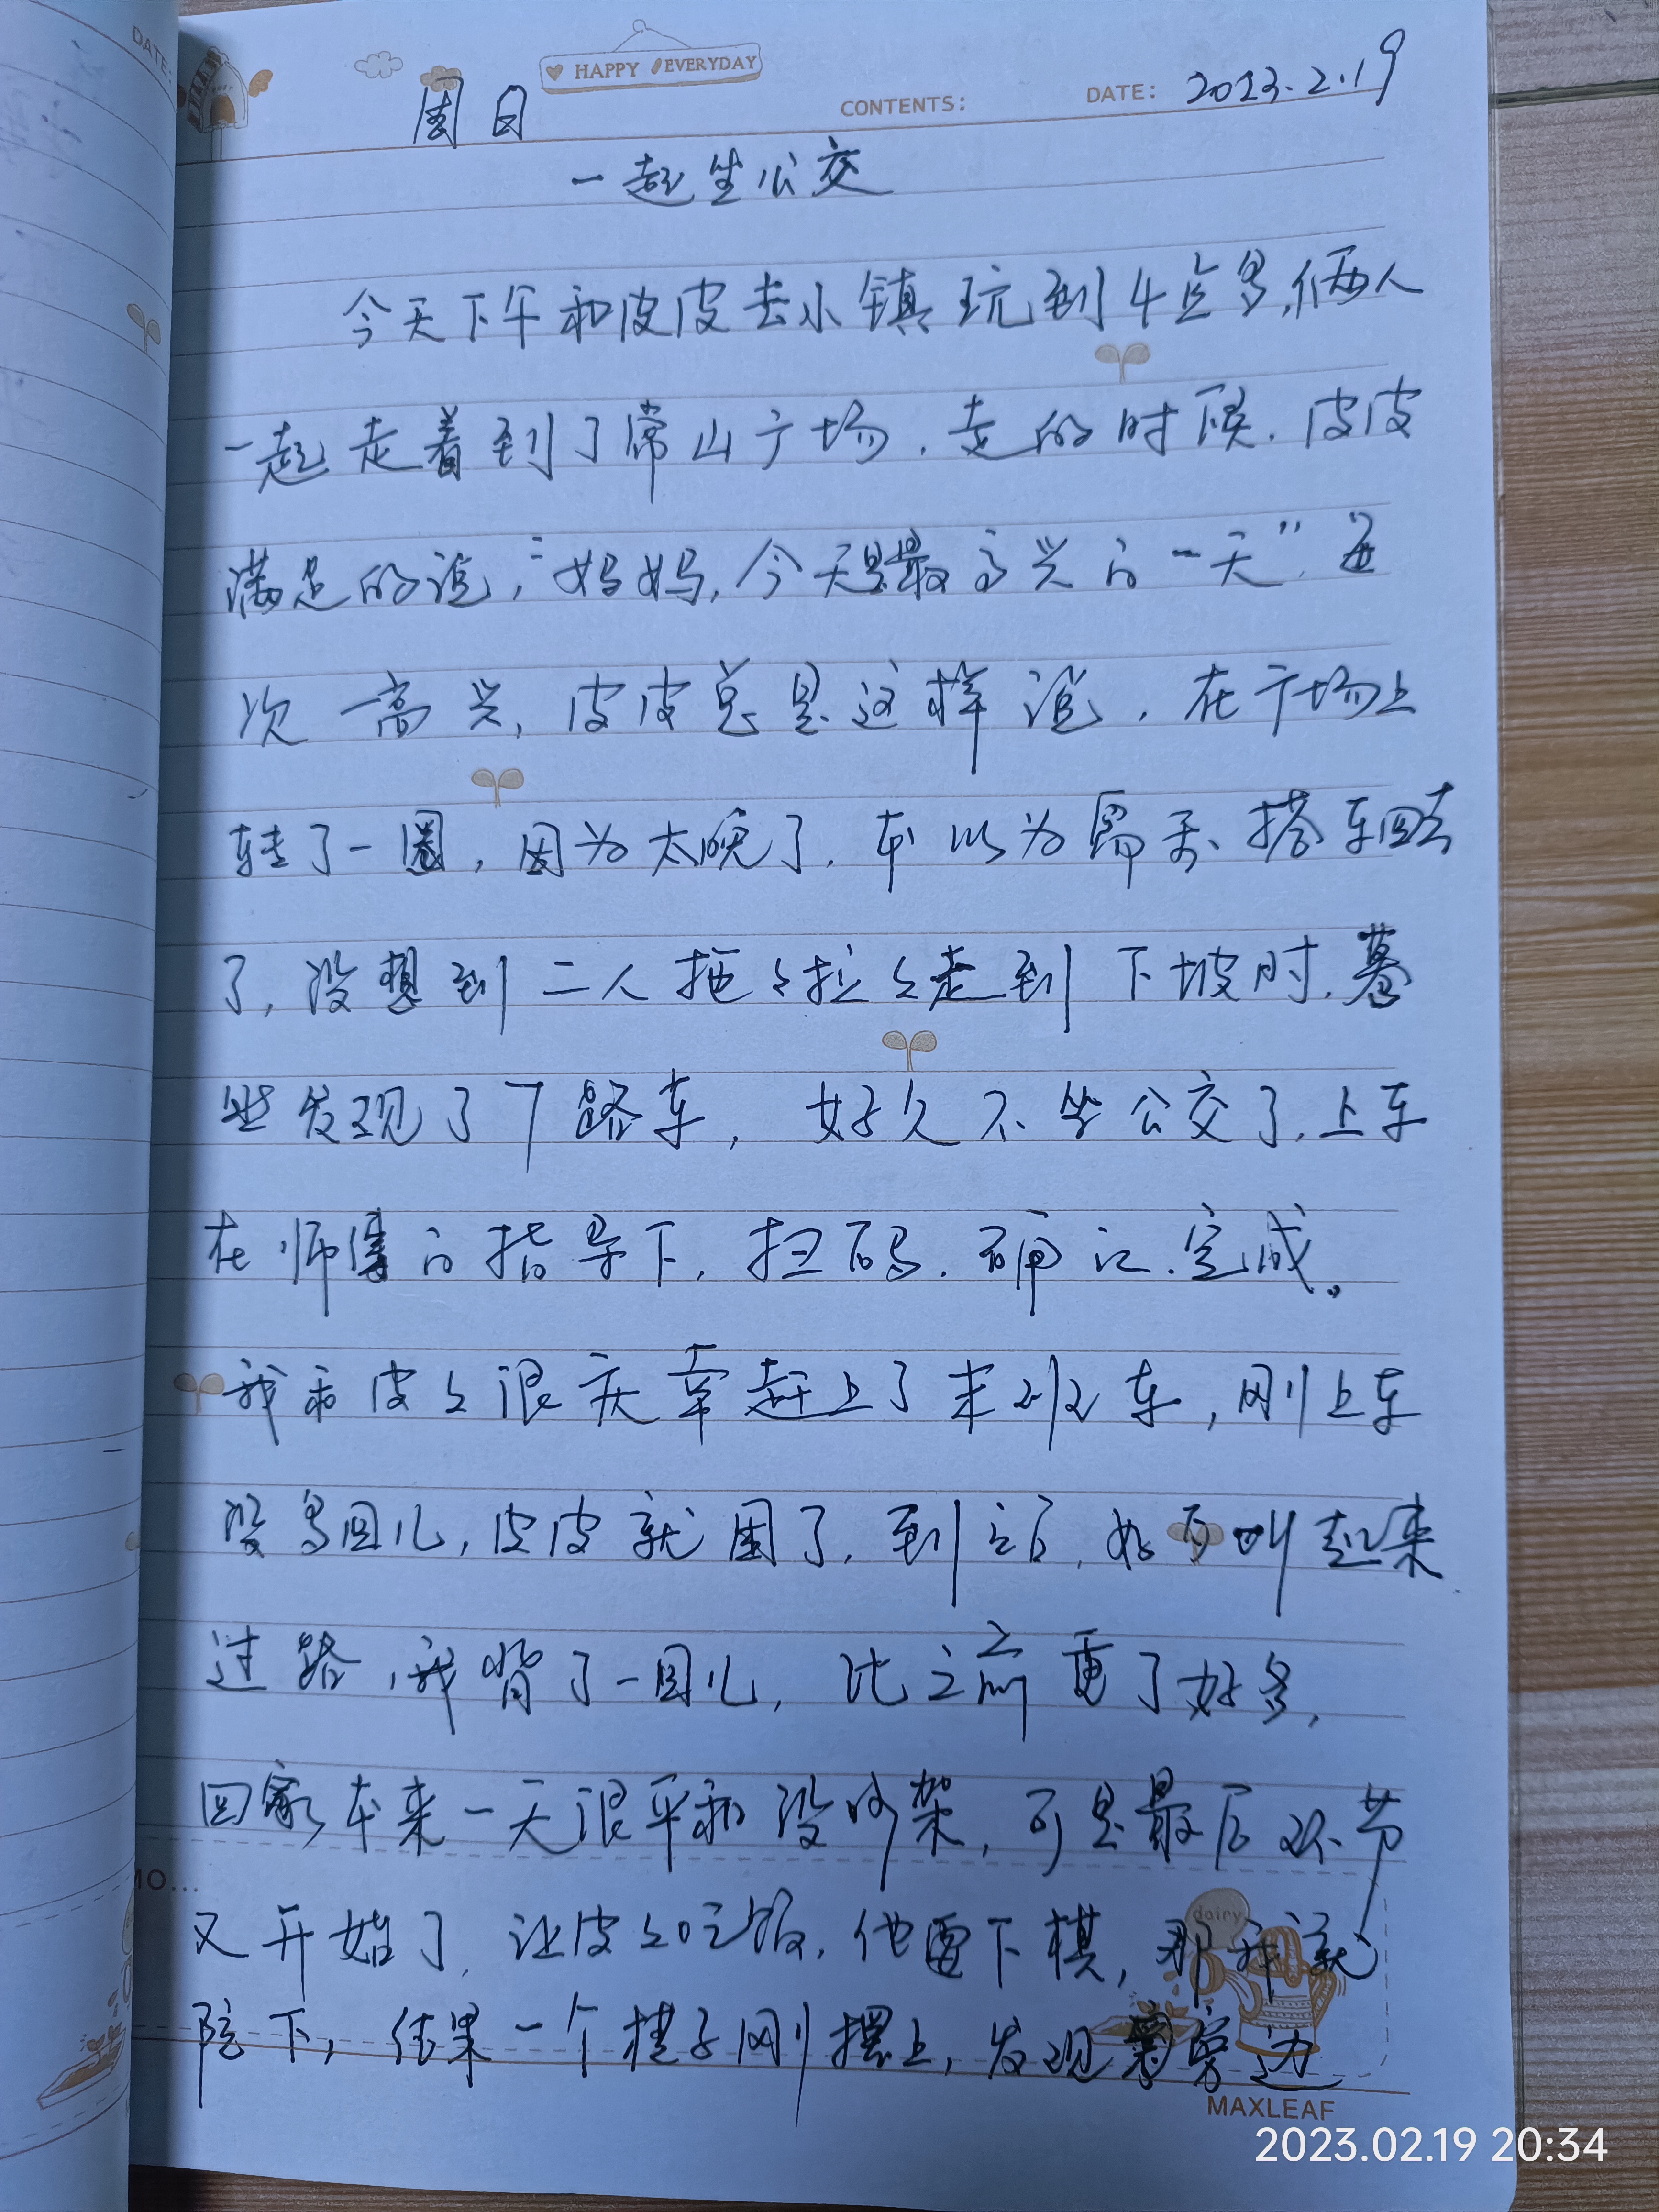 DATE:
HAPPY EVERYDAY
CONTENTS:
DATE: 2023.2.19
周日
一起坐公交
今天下午和皮皮去小镇玩到4点多,俩人
一起走着到了常山广场.走的时候.皮皮
满足的说,“妈妈,今天是最高兴的一天”.每
次一高兴,皮皮总是这样说.在广场上
转了一圈,因为太晚了.本以为需要搭车回去
了,没想到二人拖々拉々走到下坡时.蓦
然发现了7路车,好久不坐公交了.上车
在师傅的指导下.扫码.确认.完成。
我和皮々很庆幸赶上了末班车,刚上车
没多回儿,皮皮就困了.到站,如叫起来
过路,我背了一回儿,比之前重了好多,
回家本来一天很平和没吵架,可是最后环节
又开始了.让皮々吃饭.他要下棋,那我就
陪下,结果一个棋子刚摆上,发现旁边
MO...
dairy
MAXLEAF
2023.02.19 20:34